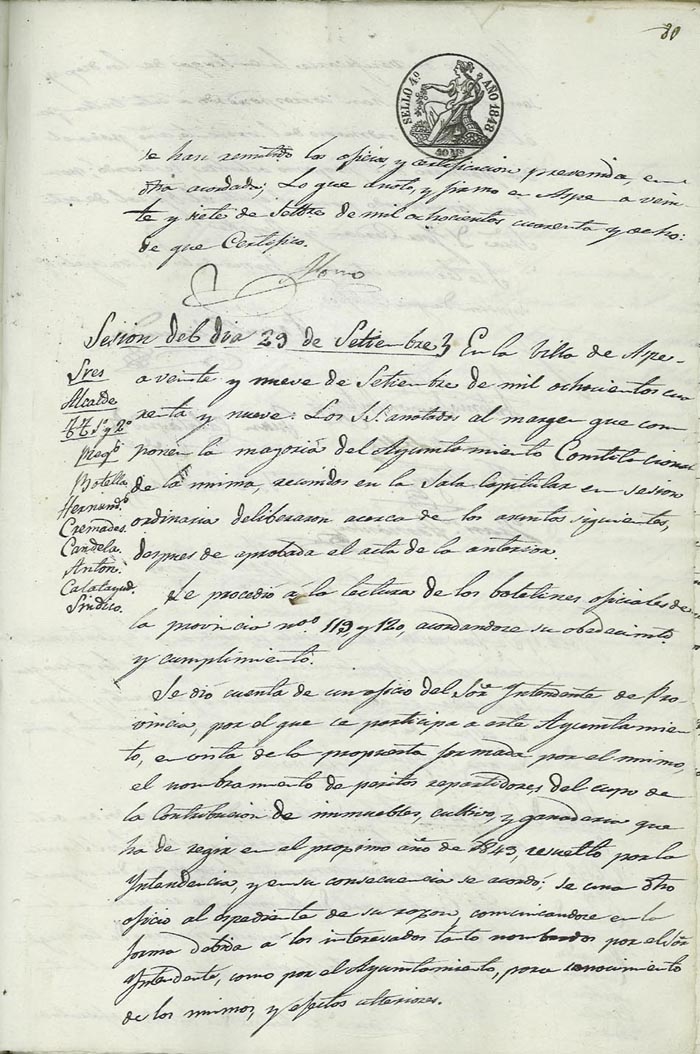 80
SELLO 4º AÑO 1848
40 Ms
se han remitido los oficios y certificacion prevenida, en
dha acordada; Lo que anoto, y firmo en Aspe a vein-
te y siete de Setbre de mil ochocientos cuarenta y ocho:
de que Certifico.
Sesion del dia 29 de Setiembre} En la Villa de Aspe
a veinte y nueve de Setiembre de mil ochocientos cua
renta y nueve: Los SS. anotados al margen que com
ponen la mayoria del Ayuntamiento Constitucional
de la misma, reunidos en la Sala Capitular en sesion
ordinaria deliberaron acerca de los asuntos siguientes,
despues de aprobada el acta de la anterior.
Sres
Alcalde
TT. 1º y 2º
Regs
Botella
Hernandº
Cremades.
Candela.
Anton.
Calatayud.
Sindico.
Se procedió á la lectura de los boletines oficiales de
la provincia nos 119 y 120, acordandose su obedecimto
y cumplimiento.
Se dió cuenta de un oficio del Sor Intendente de Pro-
vincia, por el que se participa a este Ayuntamien-
to, en vista de la propuesta formada por el mismo,
el nombramiento de peritos repartidores del cupo de
la Contribucion de inmuebles, cultivo, y ganaderia que
ha de regir en el proximo año de 1849, resuelto por la
Intendencia, y en su consecuencia se acordó: se una dho
oficio al espediente de su razon, comunicandose en la
forma debida á los interesados tanto nombrados por el Sor
Intendente, como por el Ayuntamiento, para conocimiento
de los mismos, y efectos ulteriores.